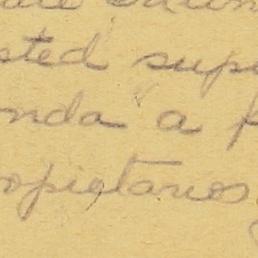 sted sup
nda a p
opietarios